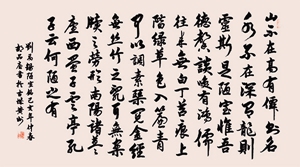 山不在高有僊則名
水不在深有龍則
靈斯是陋室惟吾
德馨談笑有鴻儒
往來無白丁苔痕上
階綠草色入簾青
可以調素琴閱金經
無絲竹之亂耳無案
牘之勞形南陽諸葛
廬西蜀子雲亭孔
子云何陋之有
劉禹錫陋室銘己亥年仲春